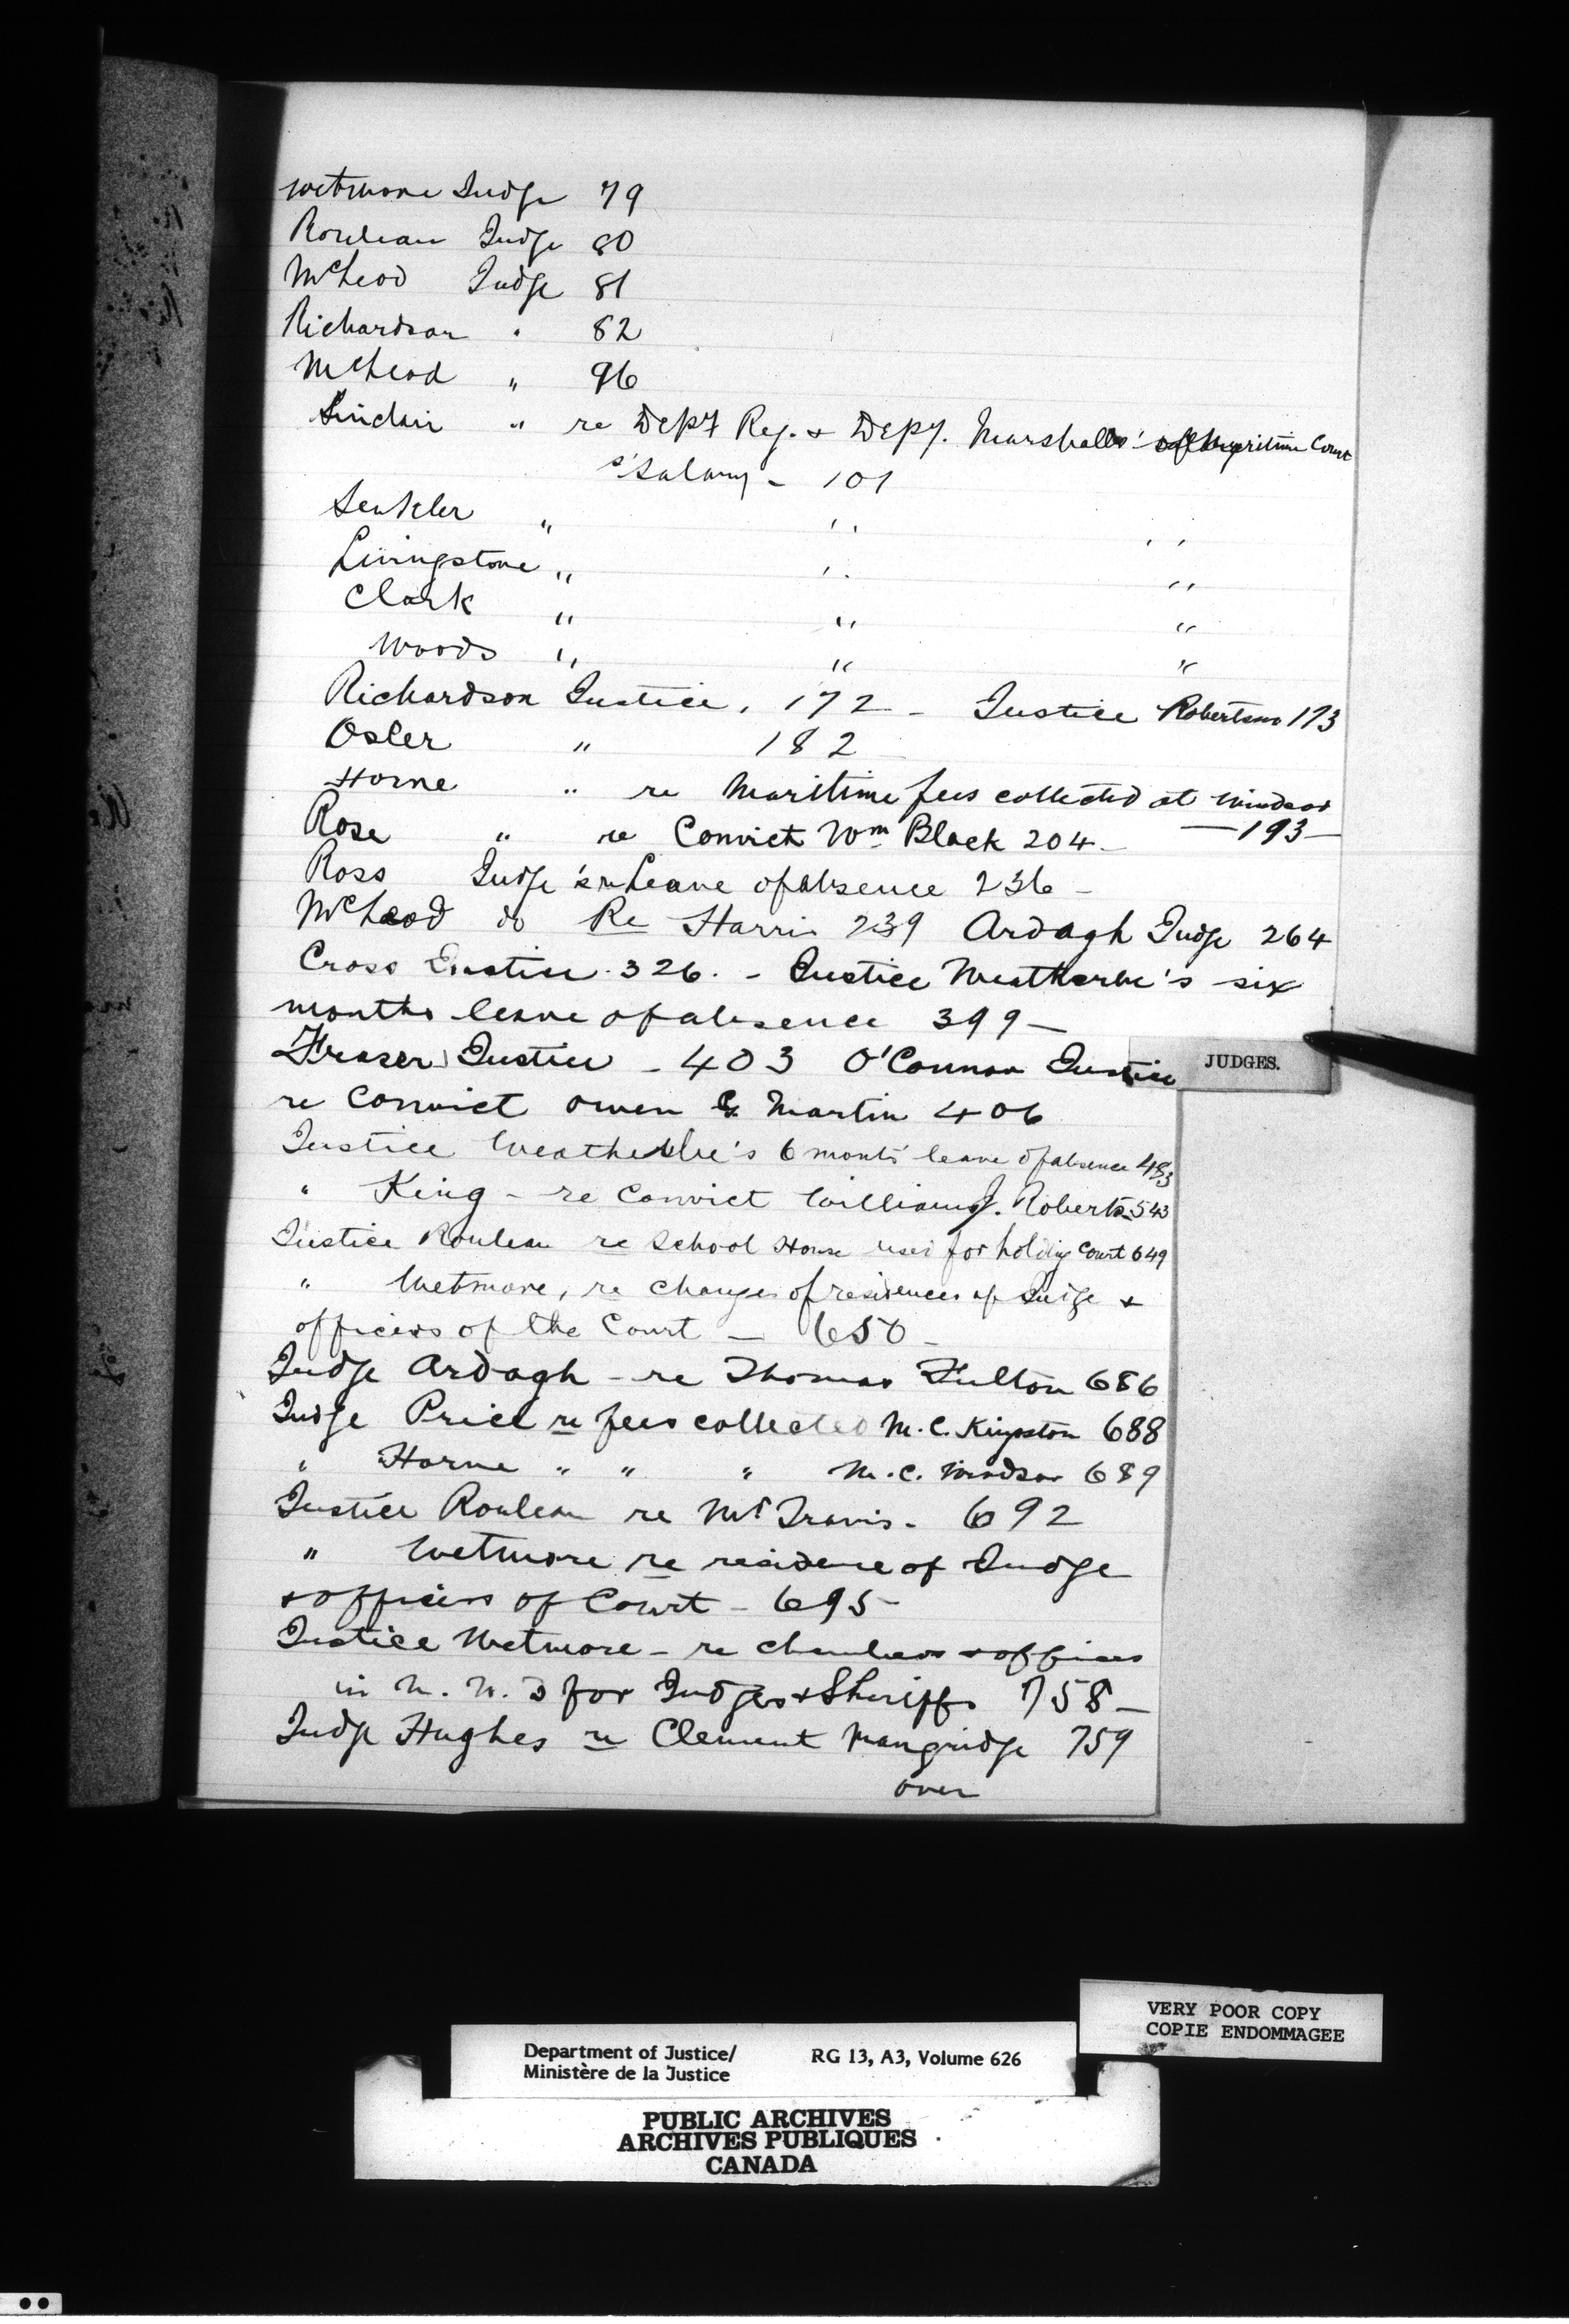 Wetmore Judge 79
Rouleau Judge 80
McLeod Judge 81
Richardson " 82
McLeod " 96
Sinclair " re Depy Reg. & Depy. Marshalls' of Maritime Court
s' Salary - 101
Senkler " " "
Livingstone " " "
Clark " " "
Woods " " "
Richardson Justice, 172 - Justice Robertson 173
Osler " 182
Horne " re Maritime fees collected at Windsor
Rose " re Convict Wm Black 204 - — 193 —
Ross Judge's re Leave of absence 236 -
McLeod do Re Harris 239 Ardagh Judge 264
Cross Justice 326. - Justice Weatherbe's six
months leave of absence 399 —
Fraser Justice - 403 O'Connor Justice
JUDGES.
re Convict Owen G. Martin 406
Justice Weatherbe's 6 months' leave of absence 483
" King - re Convict William J. Roberts 543
Justice Rouleau re School House used for holding Court 649
" Wetmore, re changes of residences of Judge &
officers of the Court — 650 -
Judge Ardagh - re Thomas Fulton 686
Judge Price re fees collected M.C. Kingston 688
" Horne " " " M.C. Windsor 689
Justice Rouleau re Mr Travis - 692
" Wetmore re residence of Judge
& officers of Court - 695 -
Justice Wetmore - re chambers & offices
in N. W. D for Judges & Sheriffs 758 —
Judge Hughes re Clement Mangridge 759
over
VERY POOR COPY
COPIE ENDOMMAGEE
Department of Justice/ RG 13, A3, Volume 626
Ministère de la Justice
PUBLIC ARCHIVES
ARCHIVES PUBLIQUES
CANADA